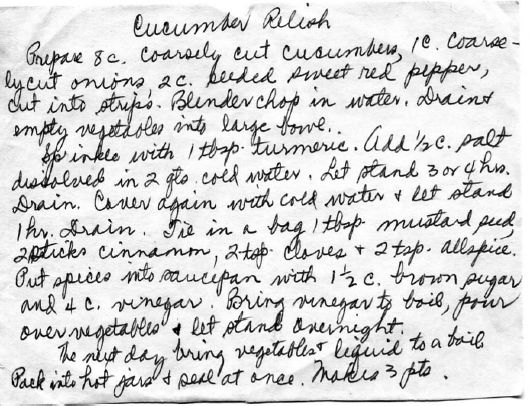 Cucumber Relish
Prepare 8 c. coarsely cut cucumbers, 1 c. coarse-
ly cut onions, 2 c. seeded sweet red pepper,
cut into strips. Blender chop in water. Drain &
empty vegetables into large bowl.
Sprinkle with 1 tbsp. turmeric. Add 1/2 c. salt
dissolved in 2 qts. cold water. Let stand 3 or 4 hrs.
Drain. Cover again with cold water & let stand
1 hr. Drain. Tie in a bag 1 tbsp. mustard seed,
2 sticks cinnamon, 2 tsp. cloves & 2 tsp. allspice.
Put spices into saucepan with 1 1/2 c. brown sugar
and 4 c. vinegar. Bring vinegar to boil, pour
over vegetables & let stand overnight.
The next day bring vegetables & liquid to a boil.
Pack into hot jars & seal at once. Makes 3 pts.